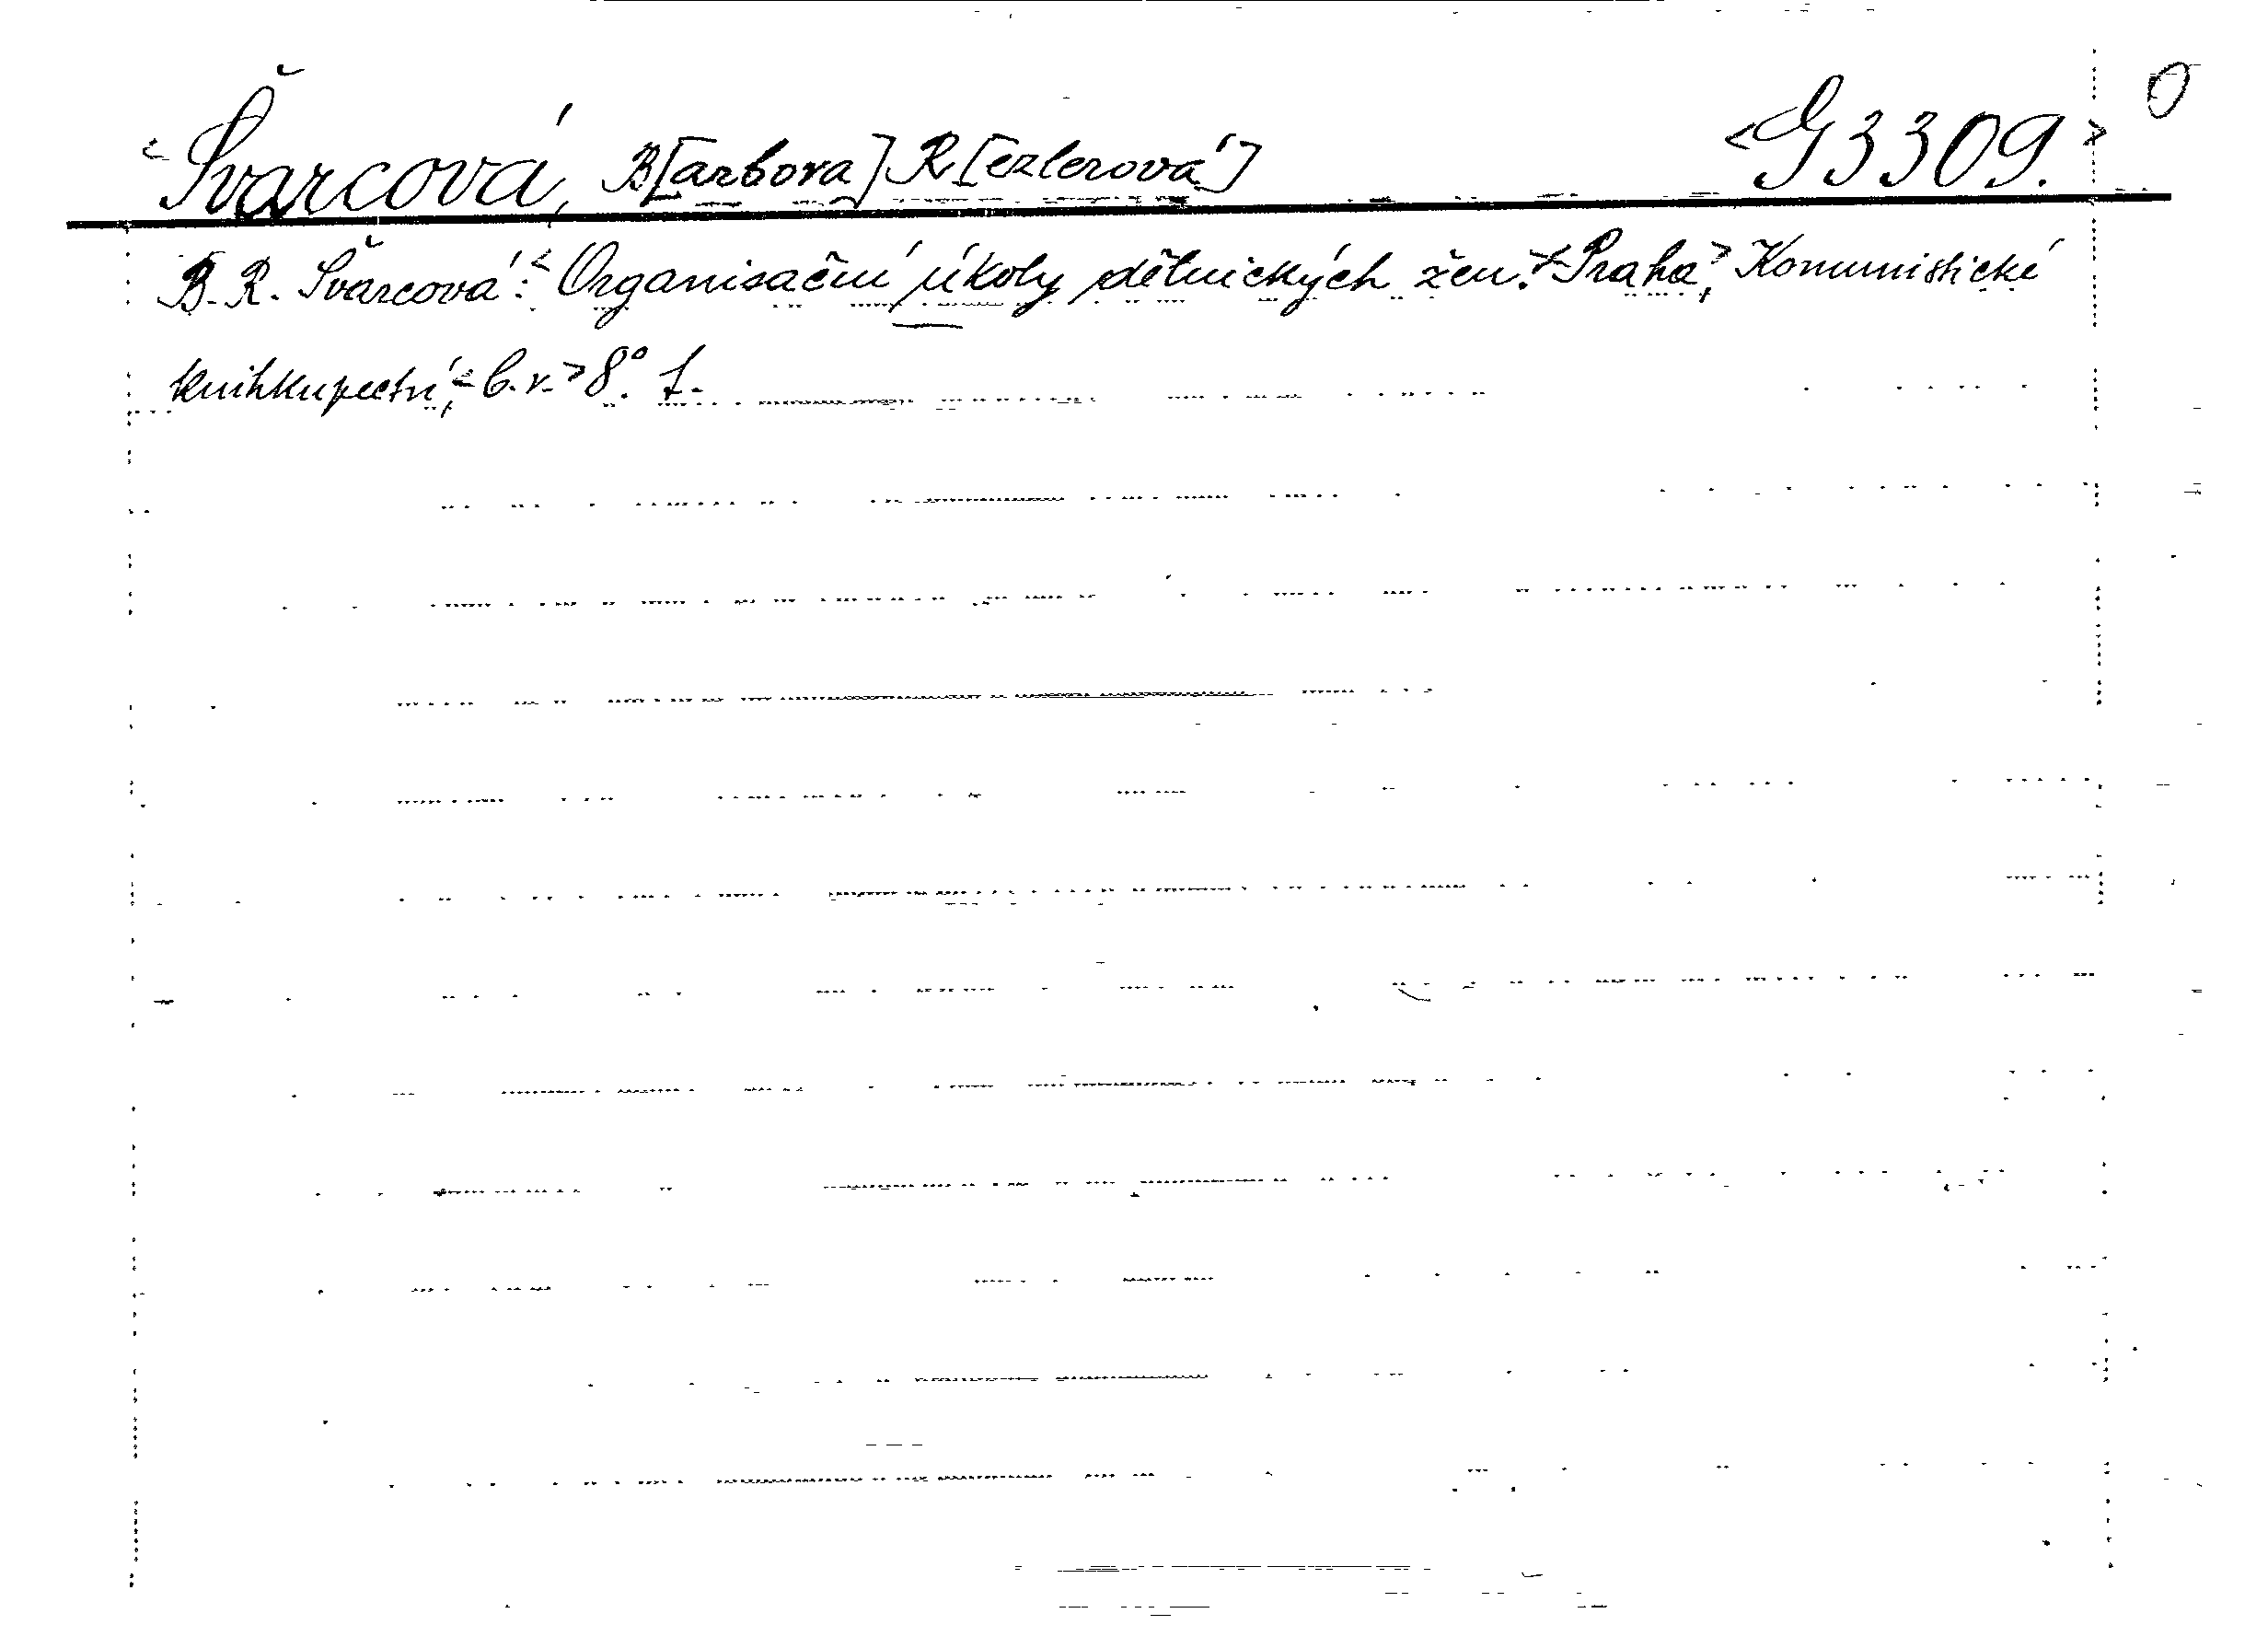 <Švarcová, B[arbora] R[ezlerová] <G 3309.> O
B. R. Švarcová:< Organisační úkoly dělnických žen.>< Praha,> Komunistické
knihkupectví,< b.r.> 8°. 1.